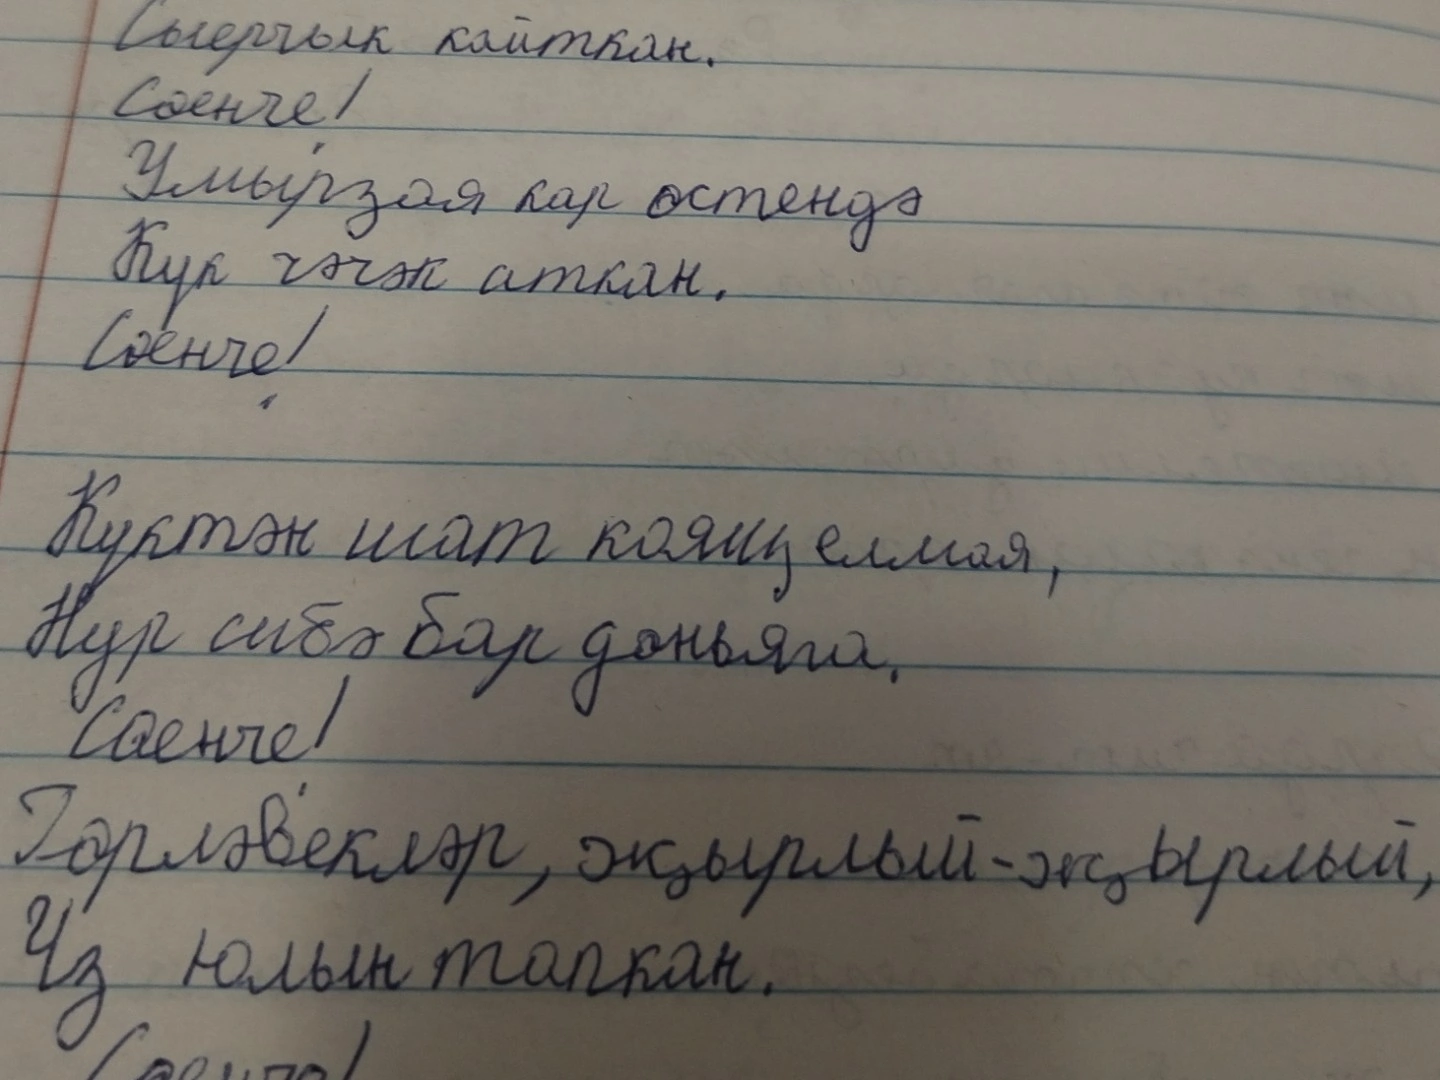 Сыерчык кайткан.
Сөенче!
Умырзая кар өстендә
Күк чәчәк аткан.
Сөенче!
Күктән шат кояш елмая,
Нур сибә бар дөньяга.
Сөенче!
Гөрләвекләр, җырлый-җырлый,
Үз юлын тапкан.
Сөенче!